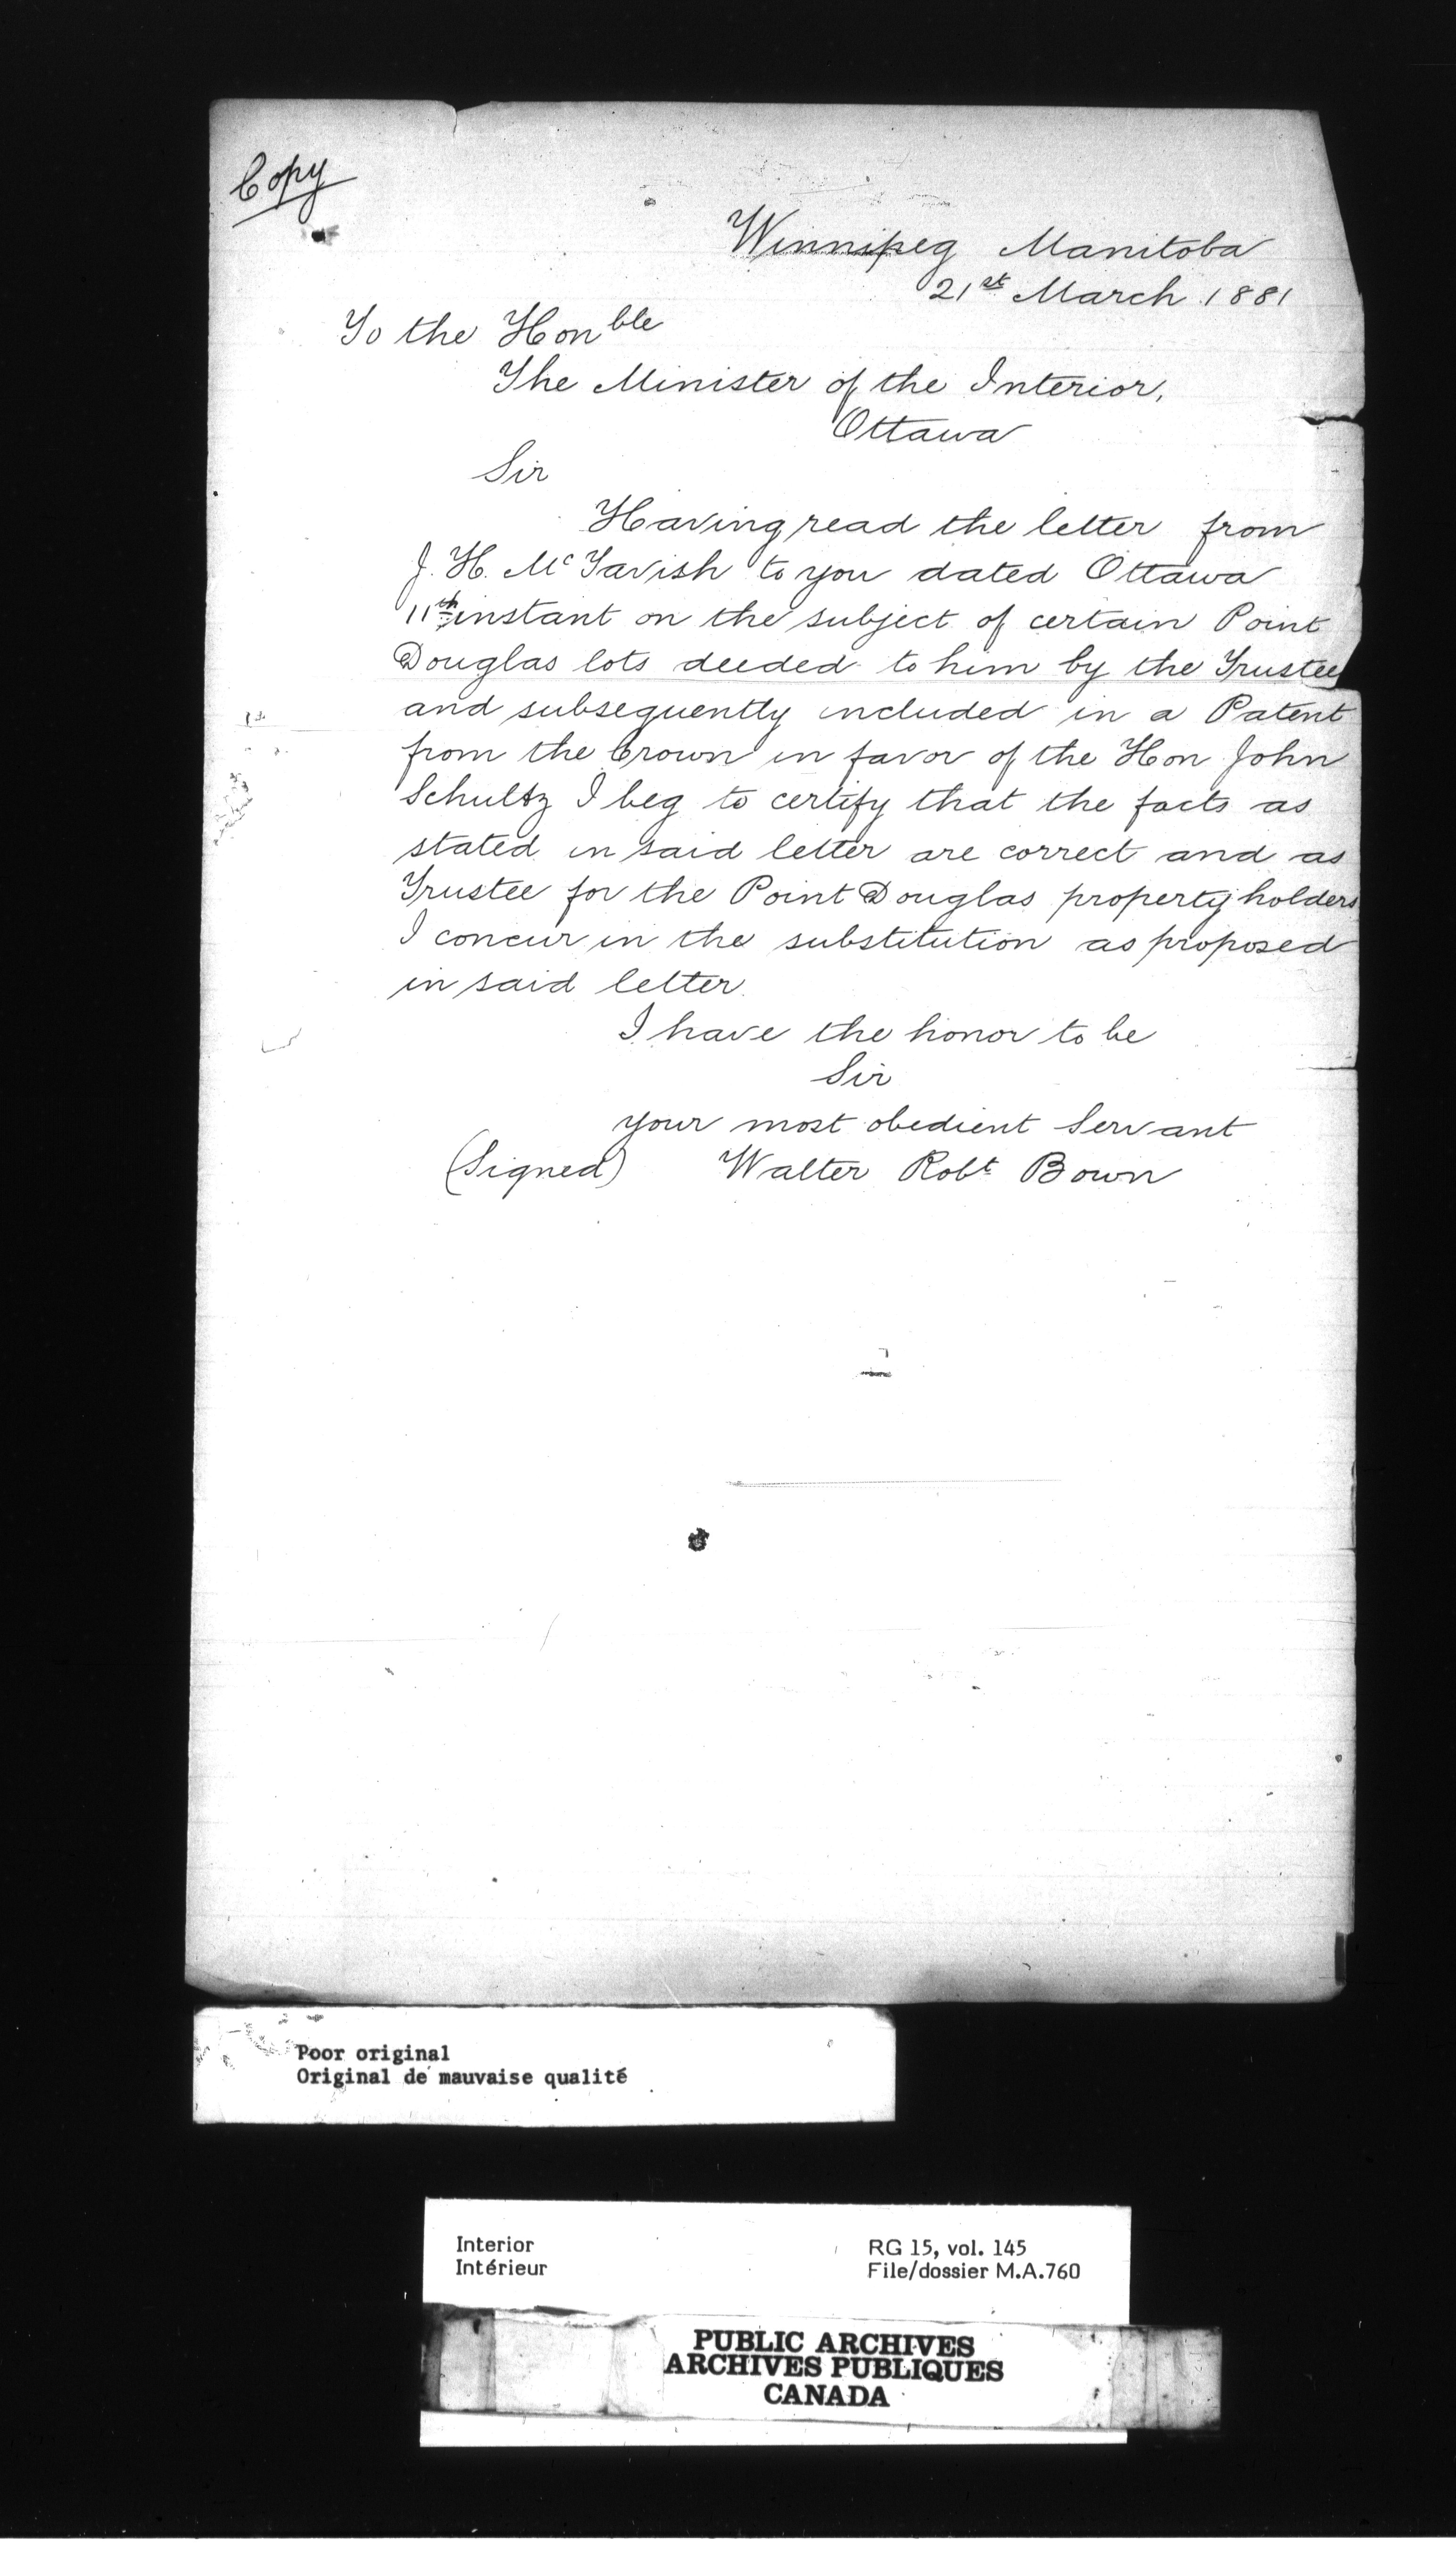 Copy
Winnipeg Manitoba
21st March 1881
To the Honble
The Minister of the Interior,
Ottawa
Sir
Having read the letter from
J. H. McTavish to you dated Ottawa
11th instant on the subject of certain Point
Douglas lots deeded to him by the Trustee
and subsequently included in a Patent
from the Crown in favor of the Hon John
Schultz I beg to certify that the facts as
stated in said letter are correct and as
Trustee for the Point Douglas property holders
I concur in the substitution as proposed
in said letter.
I have the honor to be
Sir
your most obedient Servant
(Signed) Walter Robt Bown
Poor original
Original de mauvaise qualité
Interior RG 15, vol. 145
Intérieur File/dossier M.A.760
PUBLIC ARCHIVES
ARCHIVES PUBLIQUES
CANADA